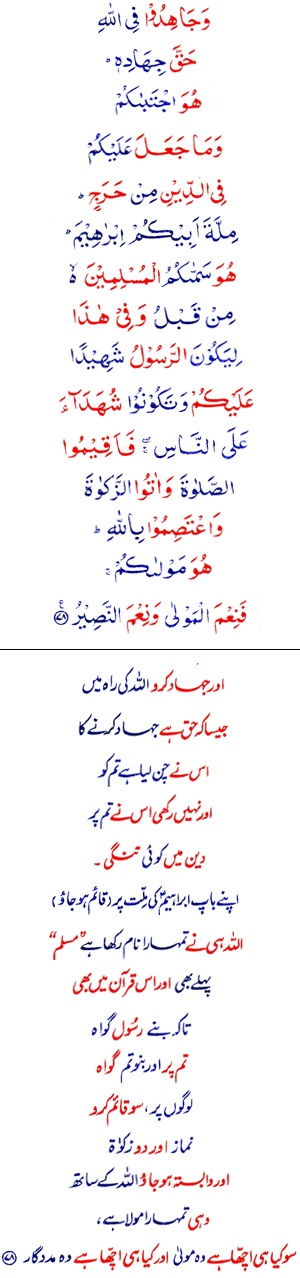 وَجَاهِدُوْا فِی اللّٰهِ
حَقَّ جِهَادِهٖ ؕ
هُوَ اجْتَبٰىكُمْ
وَمَا جَعَلَ عَلَيْكُمْ
فِی الدِّيْنِ مِنْ حَرَجٍ ؕ
مِلَّةَ اَبِيْكُمْ اِبْرٰهِيْمَ ؕ
هُوَ سَمّٰىكُمُ الْمُسْلِمِيْنَ ۙ
مِنْ قَبْلُ وَفِیْ هٰذَا
لِيَكُوْنَ الرَّسُوْلُ شَهِيْدًا
عَلَيْكُمْ وَتَكُوْنُوْا شُهَدَآءَ
عَلَى النَّاسِ ۖۚ فَاَقِيْمُوا
الصَّلٰوةَ وَاٰتُوا الزَّكٰوةَ
وَاعْتَصِمُوْا بِاللّٰهِ ؕ
هُوَ مَوْلٰىكُمْ ۚ
فَنِعْمَ الْمَوْلٰى وَنِعْمَ النَّصِيْرُ ۧ ﴿۷۸﴾
اور جہاد کرو اللہ کی راہ میں
جیسا کہ حق ہے جہاد کرنے کا
اس نے چن لیا ہے تم کو
اور نہیں رکھی اس نے تم پر
دین میں کوئی تنگی ۔
اپنے باپ ابراہیمؑ کی ملّت پر (قائم ہو جاؤ)
اللہ ہی نے تمہارا نام رکھا ہے "مسلم"
پہلے بھی اور اس قرآن میں بھی
تاکہ بنے رسُول گواہ
تم پر اور بنو تم گواہ
لوگوں پر، سو قائم کرو
نماز اور دو زکوٰۃ
اور وابستہ ہو جاؤ اللہ کے ساتھ
وہی تمہارا مولا ہے،
سو کیا ہی اچھا ہے وہ مولیٰ اور کیا ہی اچھا ہے وہ مددگار ﴿۷۸﴾